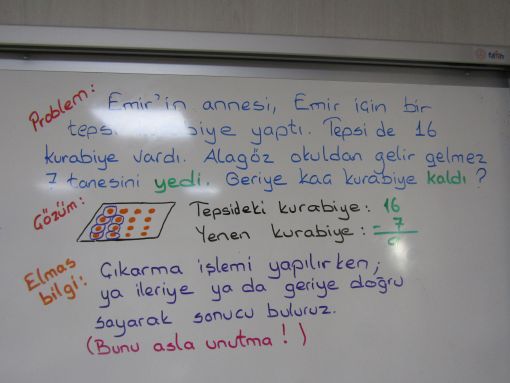 Problem: Emir'in annesi, Emir için bir
tepsi kurabiye yaptı. Tepsi de 16
kurabiye vardı. Alagöz okuldan gelir gelmez
7 tanesini yedi. Geriye kaç kurabiye kaldı?
Çözüm: Tepsideki kurabiye: 16
Yenen kurabiye: - 7
Elmas bilgi: Çıkarma işlemi yapılırken;
ya ileriye ya da geriye doğru
sayarak sonucu buluruz.
(Bunu asla unutma!)